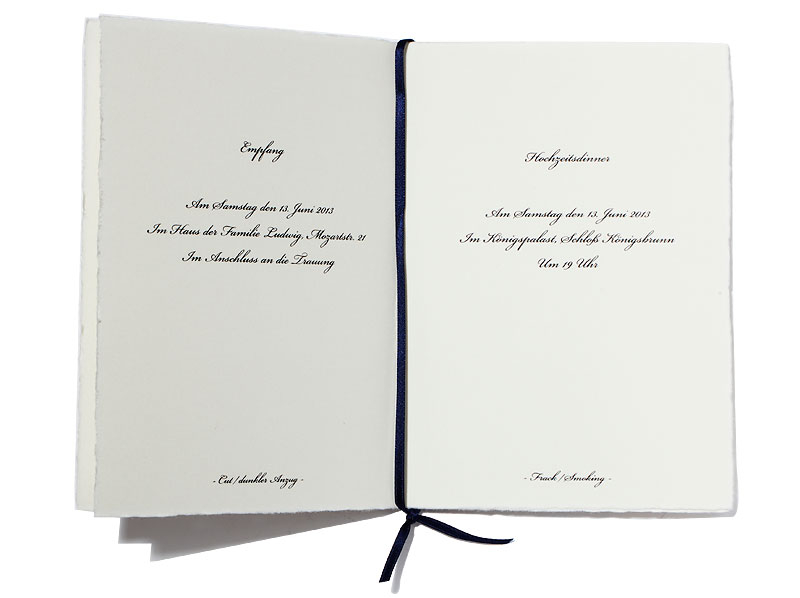 Empfang
Am Samstag den 13. Juni 2013
Im Haus der Familie Ludwig, Mozartstr. 21
Im Anschluss an die Trauung
- Cut / dunkler Anzug -
Hochzeitsdinner
Am Samstag den 13. Juni 2013
Im Königspalast, Schloß Königsbrunn
Um 19 Uhr
- Frack / Smoking -